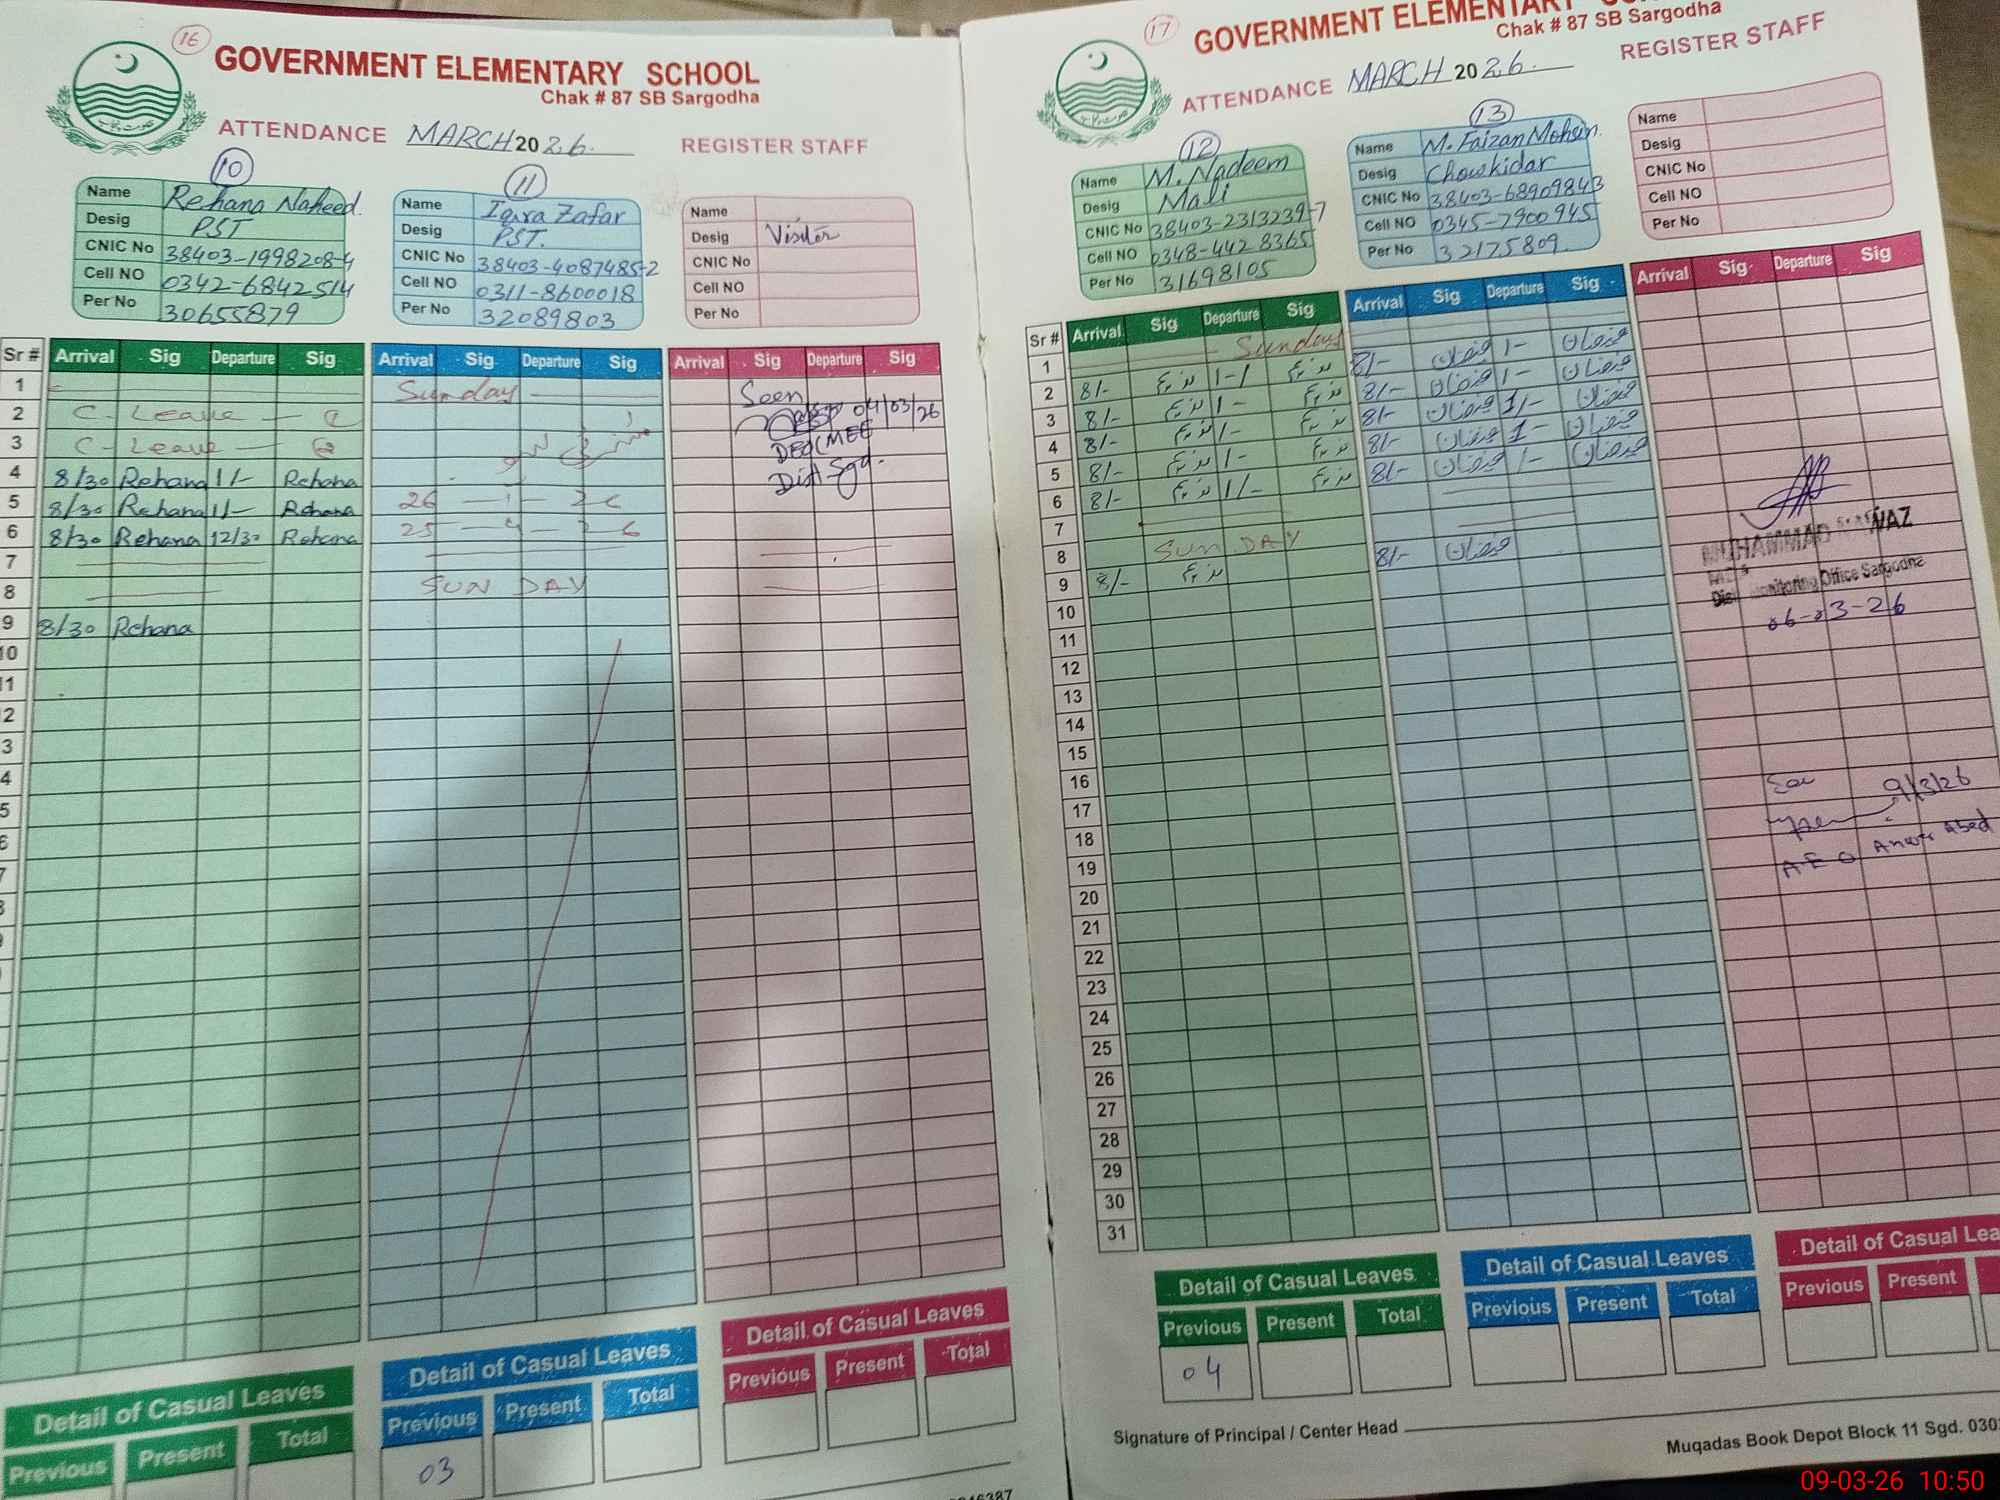 16
GOVERNMENT ELEMENTARY SCHOOL
Chak # 87 SB Sargodha
ATTENDANCE MARCH 2026. REGISTER STAFF
10
Name Rehana Naheed.
Desig PST
CNIC No 38403-1998208-4
Cell NO 0342-6842514
Per No 30655879
11
Name Iqra Zafar
Desig PST.
CNIC No 38403-4087485-2
Cell NO 0311-8600018
Per No 32089803
Name
Desig Visitor
CNIC No
Cell NO
Per No
Sr # Arrival Sig Departure Sig Arrival Sig Departure Sig Arrival Sig Departure Sig
1 Sunday Seen
2 C- Leave 1 04/03/26
3 C- Leave 2 DEO(MEE
4 8/30 Rehana 1/- Rehana Distt Sgd.
5 8/30 Rehana 1/- Rehana 26
6 8/30 Rehana 12/30 Rehana 25
7
8 SUN DAY
9 8/30 Rehana
10
11
Detail of Casual Leaves
Previous Present Total
Detail of Casual Leaves
Previous Present Total
03
Detail of Casual Leaves
Previous Present Total
17
GOVERNMENT ELEMENTARY
Chak # 87 SB Sargodha
ATTENDANCE MARCH 2026. REGISTER STAFF
12
Name M. Nadeem
Desig Mali
CNIC No 38403-2313239-7
Cell NO 0348-4428365
Per No 31698105
13
Name M. Faizan Mohsin.
Desig Chowkidar
CNIC No 38403-6890984-3
Cell NO 0345-7900945
Per No 32175809
Name
Desig
CNIC No
Cell NO
Per No
Sr # Arrival Sig Departure Sig Arrival Sig Departure Sig Arrival Sig Departure Sig
1 Sunday
2 8/- ندیم 1-/ ندیم 8/- فیضان 1- فیضان
3 8/- ندیم 1- ندیم 8/- فیضان 1- فیضان
4 8/- ندیم 1/- ندیم 8/- فیضان 1/- فیضان
5 8/- ندیم 1- ندیم 8/- فیضان 1- فیضان
6 8/- ندیم 1/- ندیم 8/- فیضان 1- فیضان
7
8 SUN DAY
9 8/- ندیم 8/- فیضان
MUHAMMAD NAWAZ
Monitoring Office Sargodha
06-03-26
10
11
12
13
14
15
16
17 9/3/26
18
19 AEO
20
21
22
23
24
25
26
27
28
29
30
31
Detail of Casual Leaves
Previous Present Total
04
Detail of Casual Leaves
Previous Present Total
Detail of Casual Lea
Previous Present
Signature of Principal / Center Head
Muqadas Book Depot Block 11 Sgd. 030
09-03-26 10:50